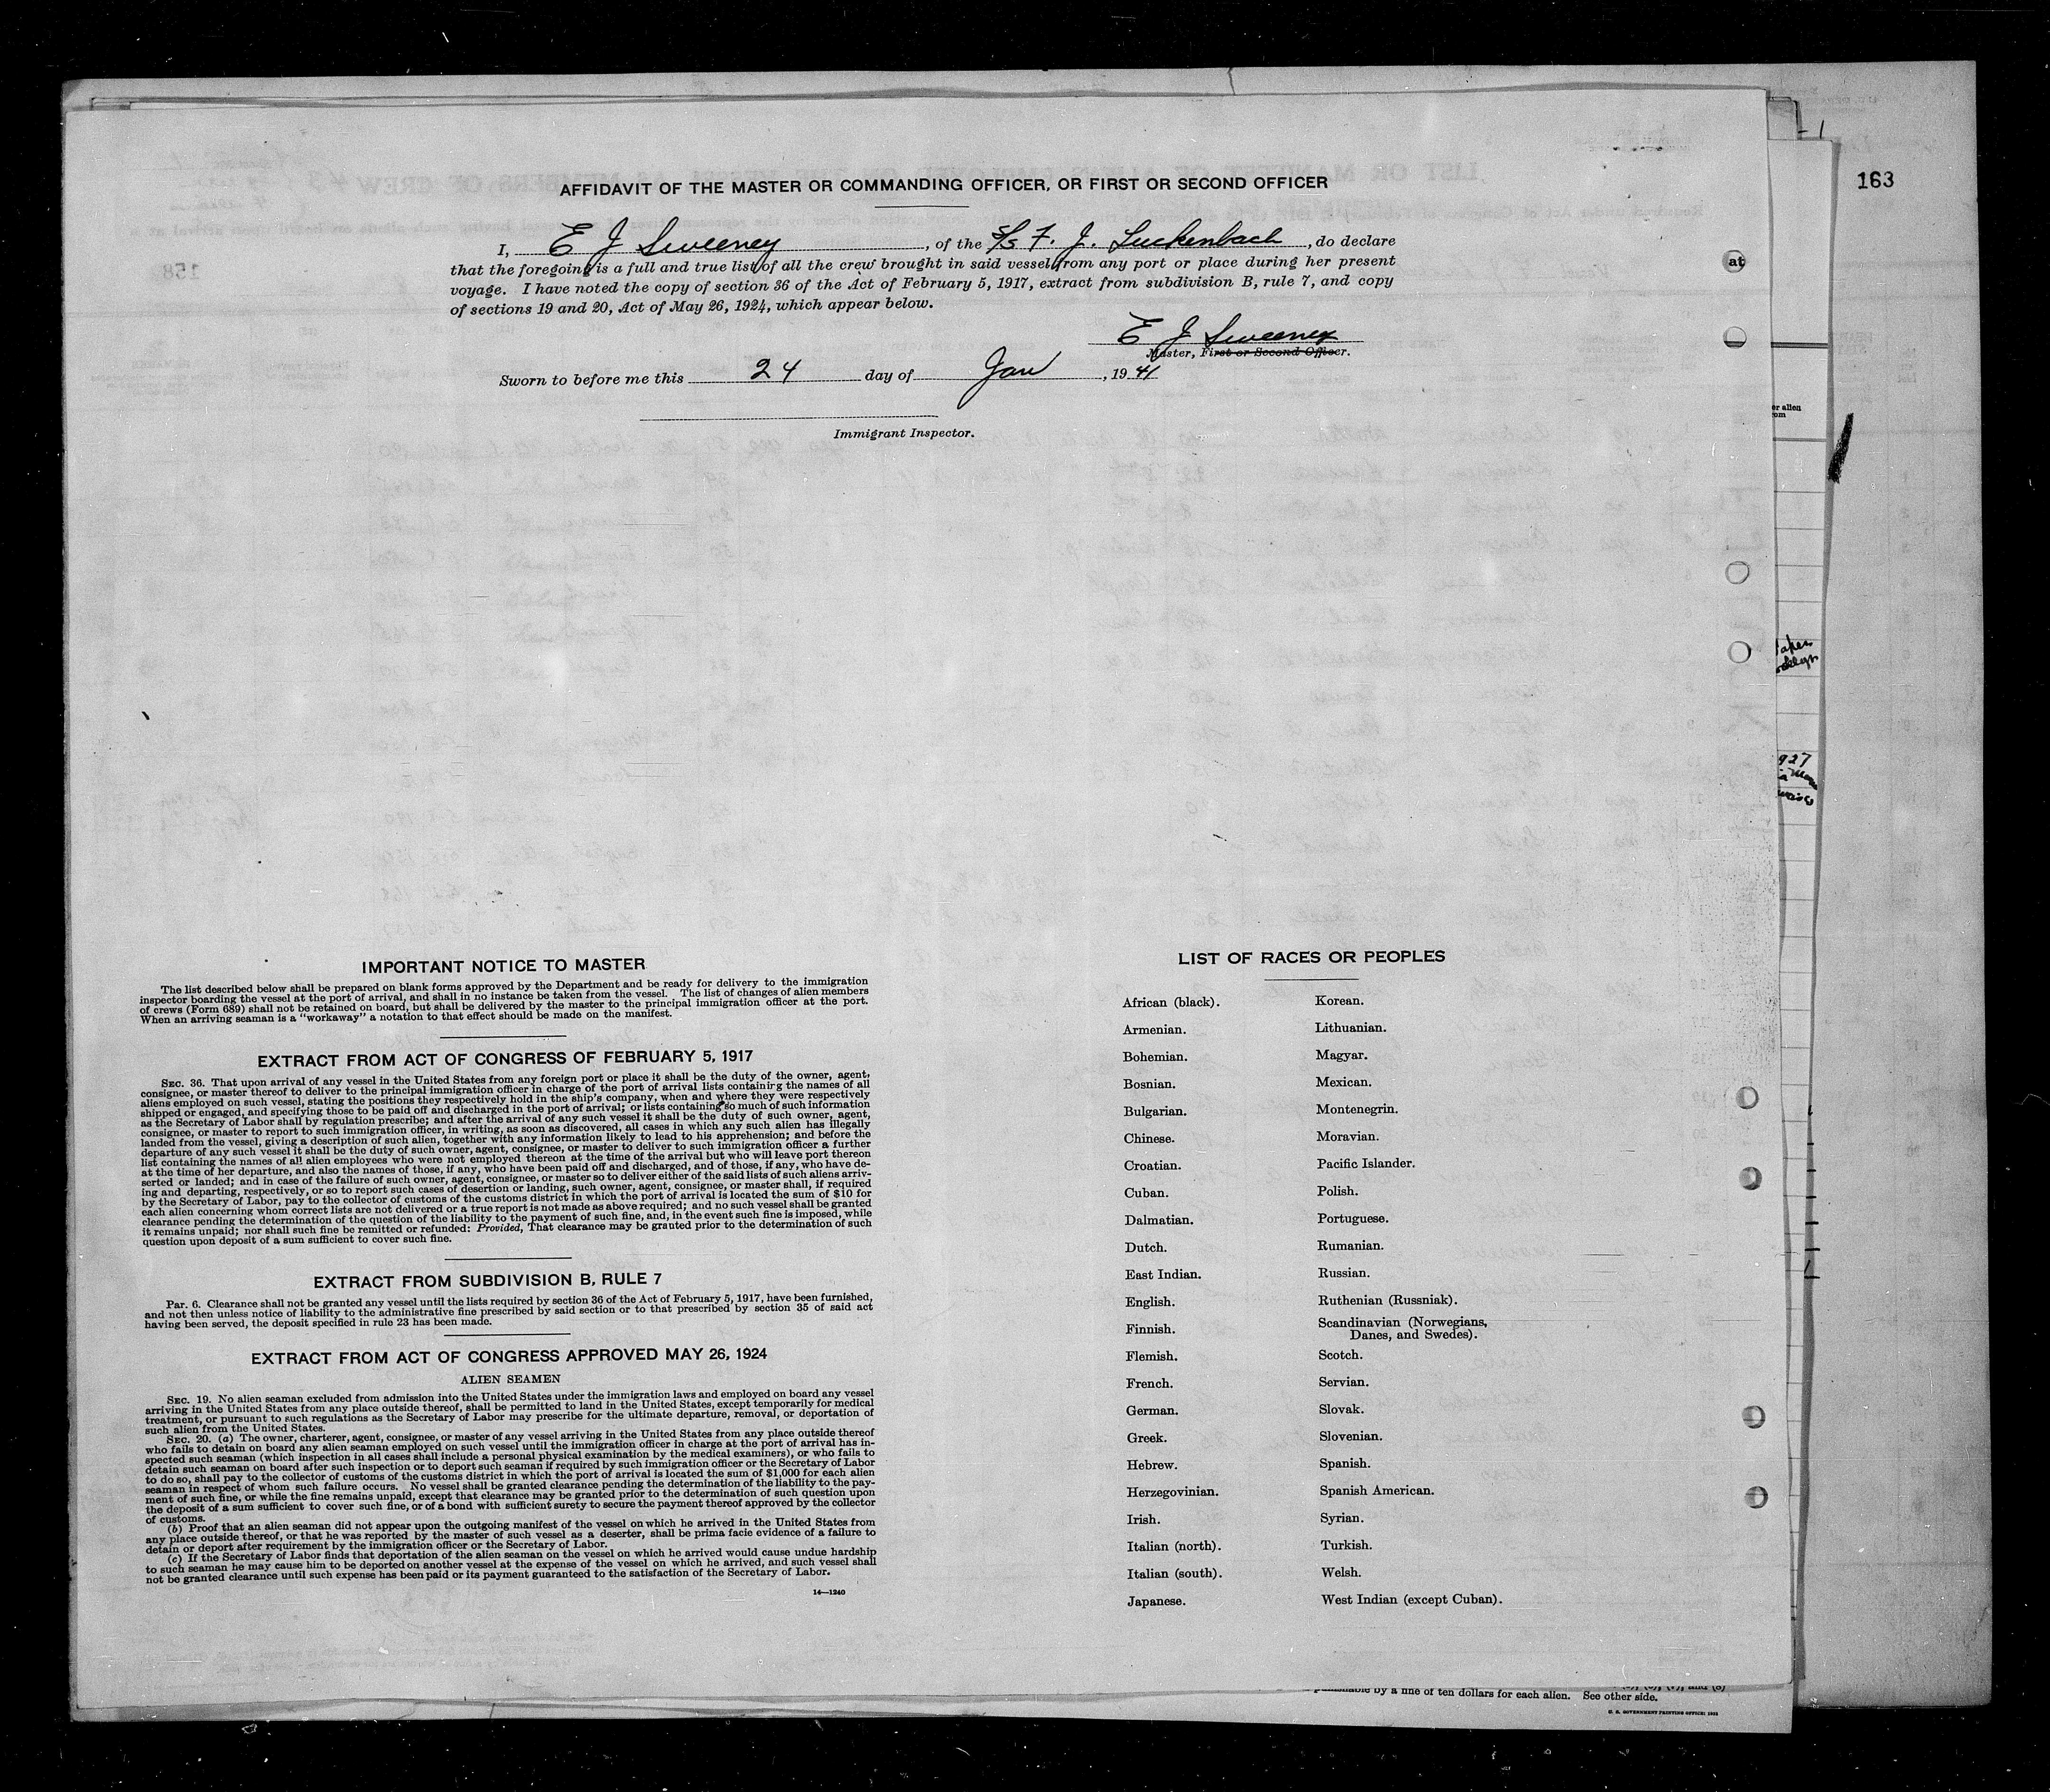 163
AFFIDAVIT OF THE MASTER OR COMMANDING OFFICER, OR FIRST OR SECOND OFFICER
I, E J Sweeney, of the S/S F. J. Luckenbach, do declare
that the foregoing is a full and true list of all the crew brought in said vessel from any port or place during her present
voyage. I have noted the copy of section 36 of the Act of February 5, 1917, extract from subdivision B, rule 7, and copy
of sections 19 and 20, Act of May 26, 1924, which appear below.
E J Sweeney
Master, First or Second Officer.
Sworn to before me this 24 day of Jan, 1941
Immigrant Inspector.
at
er alien
927
IMPORTANT NOTICE TO MASTER
The list described below shall be prepared on blank forms approved by the Department and be ready for delivery to the immigration
inspector boarding the vessel at the port of arrival, and shall in no instance be taken from the vessel. The list of changes of alien members
of crews (Form 689) shall not be retained on board, but shall be delivered by the master to the principal immigration officer at the port.
When an arriving seaman is a "workaway" a notation to that effect should be made on the manifest.
EXTRACT FROM ACT OF CONGRESS OF FEBRUARY 5, 1917
SEC. 36. That upon arrival of any vessel in the United States from any foreign port or place it shall be the duty of the owner, agent,
consignee, or master thereof to deliver to the principal immigration officer in charge of the port of arrival lists containing the names of all
aliens employed on such vessel, stating the positions they respectively hold in the ship's company, when and where they were respectively
shipped or engaged, and specifying those to be paid off and discharged in the port of arrival; or lists containing so much of such information
as the Secretary of Labor shall by regulation prescribe; and after the arrival of any such vessel it shall be the duty of such owner, agent,
consignee, or master to report to such immigration officer, in writing, as soon as discovered, all cases in which any such alien has illegally
landed from the vessel, giving a description of such alien, together with any information likely to lead to his apprehension; and before the
departure of any such vessel it shall be the duty of such owner, agent, consignee, or master to deliver to such immigration officer a further
list containing the names of all alien employees who were not employed thereon at the time of the arrival but who will leave port thereon
at the time of her departure, and also the names of those, if any, who have been paid off and discharged, and of those, if any, who have de-
serted or landed; and in case of the failure of such owner, agent, consignee, or master so to deliver either of the said lists of such aliens arriv-
ing and departing, respectively, or so to report such cases of desertion or landing, such owner, agent, consignee, or master shall, if required
by the Secretary of Labor, pay to the collector of customs of the customs district in which the port of arrival is located the sum of $10 for
each alien concerning whom correct lists are not delivered or a true report is not made as above required; and no such vessel shall be granted
clearance pending the determination of the question of the liability to the payment of such fine, and, in the event such fine is imposed, while
it remains unpaid; nor shall such fine be remitted or refunded: Provided, That clearance may be granted prior to the determination of such
question upon deposit of a sum sufficient to cover such fine.
EXTRACT FROM SUBDIVISION B, RULE 7
Par. 6. Clearance shall not be granted any vessel until the lists required by section 36 of the Act of February 5, 1917, have been furnished,
and not then unless notice of liability to the administrative fine prescribed by said section or to that prescribed by section 35 of said act
having been served, the deposit specified in rule 23 has been made.
EXTRACT FROM ACT OF CONGRESS APPROVED MAY 26, 1924
ALIEN SEAMEN
SEC. 19. No alien seaman excluded from admission into the United States under the immigration laws and employed on board any vessel
arriving in the United States from any place outside thereof, shall be permitted to land in the United States, except temporarily for medical
treatment, or pursuant to such regulations as the Secretary of Labor may prescribe for the ultimate departure, removal, or deportation of
such alien from the United States.
SEC. 20. (a) The owner, charterer, agent, consignee, or master of any vessel arriving in the United States from any place outside thereof
who fails to detain on board any alien seaman employed on such vessel until the immigration officer in charge at the port of arrival has in-
spected such seaman (which inspection in all cases shall include a personal physical examination by the medical examiners), or who fails to
detain such seaman on board after such inspection or to deport such seaman if required by such immigration officer or the Secretary of Labor
to do so, shall pay to the collector of customs of the customs district in which the port of arrival is located the sum of $1,000 for each alien
seaman in respect of whom such failure occurs. No vessel shall be granted clearance pending the determination of the liability to the pay-
ment of such fine, or while the fine remains unpaid, except that clearance may be granted prior to the determination of such question upon
the deposit of a sum sufficient to cover such fine, or of a bond with sufficient surety to secure the payment thereof approved by the collector
of customs.
(b) Proof that an alien seaman did not appear upon the outgoing manifest of the vessel on which he arrived in the United States from
any place outside thereof, or that he was reported by the master of such vessel as a deserter, shall be prima facie evidence of a failure to
detain or deport after requirement by the immigration officer or the Secretary of Labor.
(c) If the Secretary of Labor finds that deportation of the alien seaman on the vessel on which he arrived would cause undue hardship
to such seaman he may cause him to be deported on another vessel at the expense of the vessel on which he arrived, and such vessel shall
not be granted clearance until such expense has been paid or its payment guaranteed to the satisfaction of the Secretary of Labor.
14—1240
LIST OF RACES OR PEOPLES
African (black).
Armenian.
Bohemian.
Bosnian.
Bulgarian.
Chinese.
Croatian.
Cuban.
Dalmatian.
Dutch.
East Indian.
English.
Finnish.
Flemish.
French.
German.
Greek.
Hebrew.
Herzegovinian.
Irish.
Italian (north).
Italian (south).
Japanese.
Korean.
Lithuanian.
Magyar.
Mexican.
Montenegrin.
Moravian.
Pacific Islander.
Polish.
Portuguese.
Rumanian.
Russian.
Ruthenian (Russniak).
Scandinavian (Norwegians,
Danes, and Swedes).
Scotch.
Servian.
Slovak.
Slovenian.
Spanish.
Spanish American.
Syrian.
Turkish.
Welsh.
West Indian (except Cuban).
by a fine of ten dollars for each alien. See other side.
U. S. GOVERNMENT PRINTING OFFICE